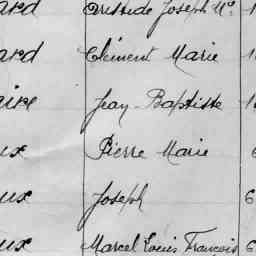 ard Aristide Joseph Mie 1
ard Clément Marie 1
aire Jean Baptiste 1
ux Pierre Marie 6
ux Joseph 6
ux Marcel Louis François 6